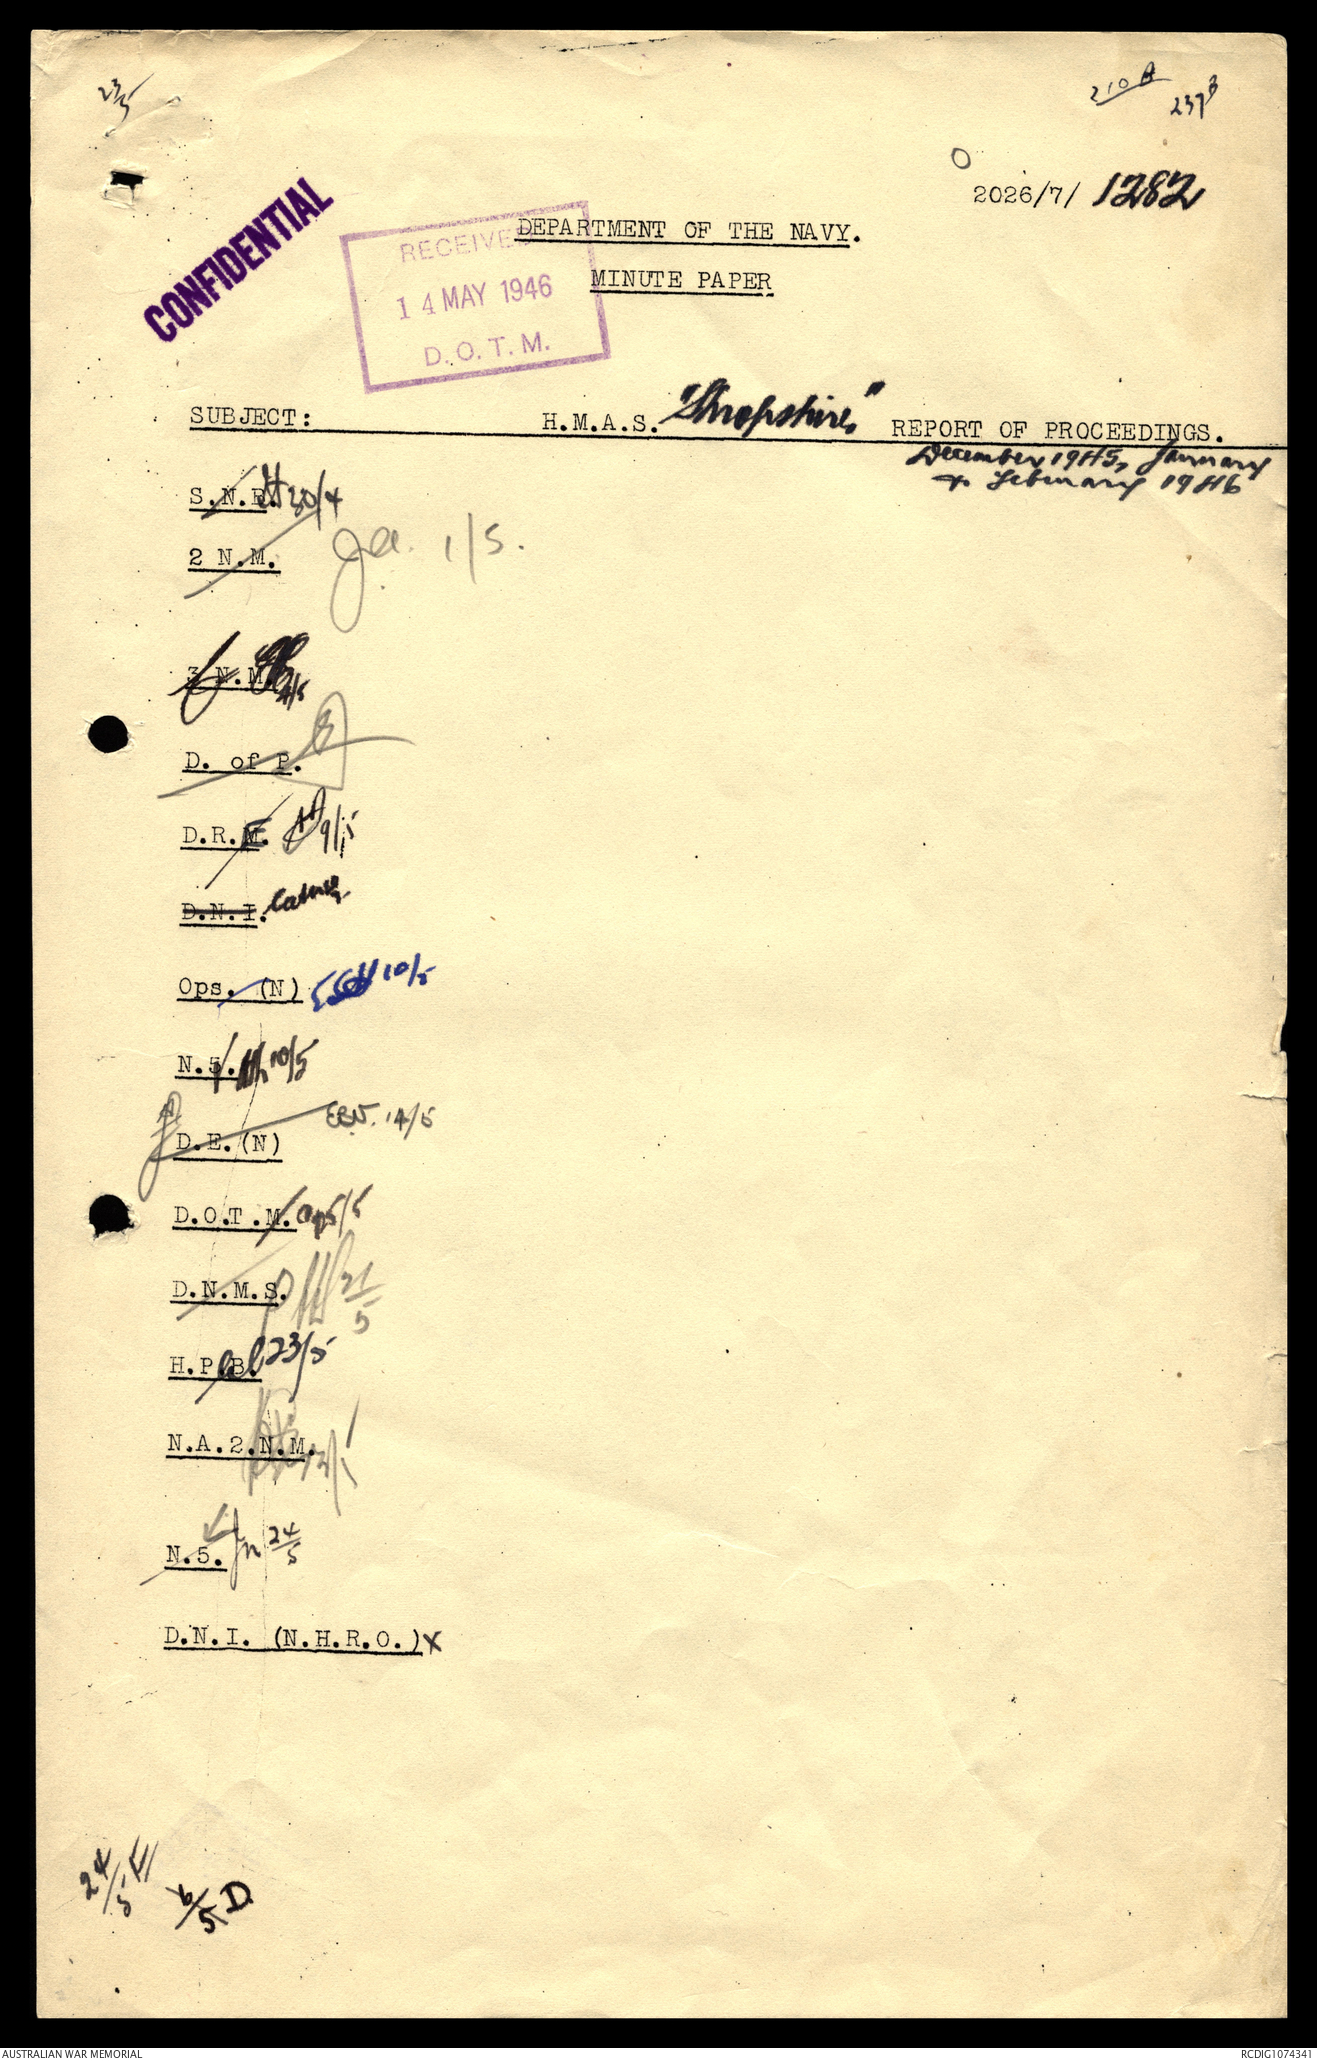 23/5
210A
237B
2026/7/ 1282
CONFIDENTIAL
DEPARTMENT OF THE NAVY.
RECEIVED
14 MAY 1946
D.O.T.M.
MINUTE PAPER
SUBJECT: H.M.A.S. "Shropshire" REPORT OF PROCEEDINGS.
December 1945, January
+ February 1946
S.N.B. 30/4
2 N.M. 1/5.
3 N.M. 4/5
D. of P.
D.R.M. 9/5
D.N.I.
Ops. (N) 10/5
N.5. 10/5
D.E.(N) 14/5
D.O.T.M.
D.N.M.S. 21/5
H.P.B. 23/5
N.A.2.N.M.
N.5. 24/5
D.N.I. (N.H.R.O.)x
24/5
6/5 D
AUSTRALIAN WAR MEMORIAL
RCDIG1074341